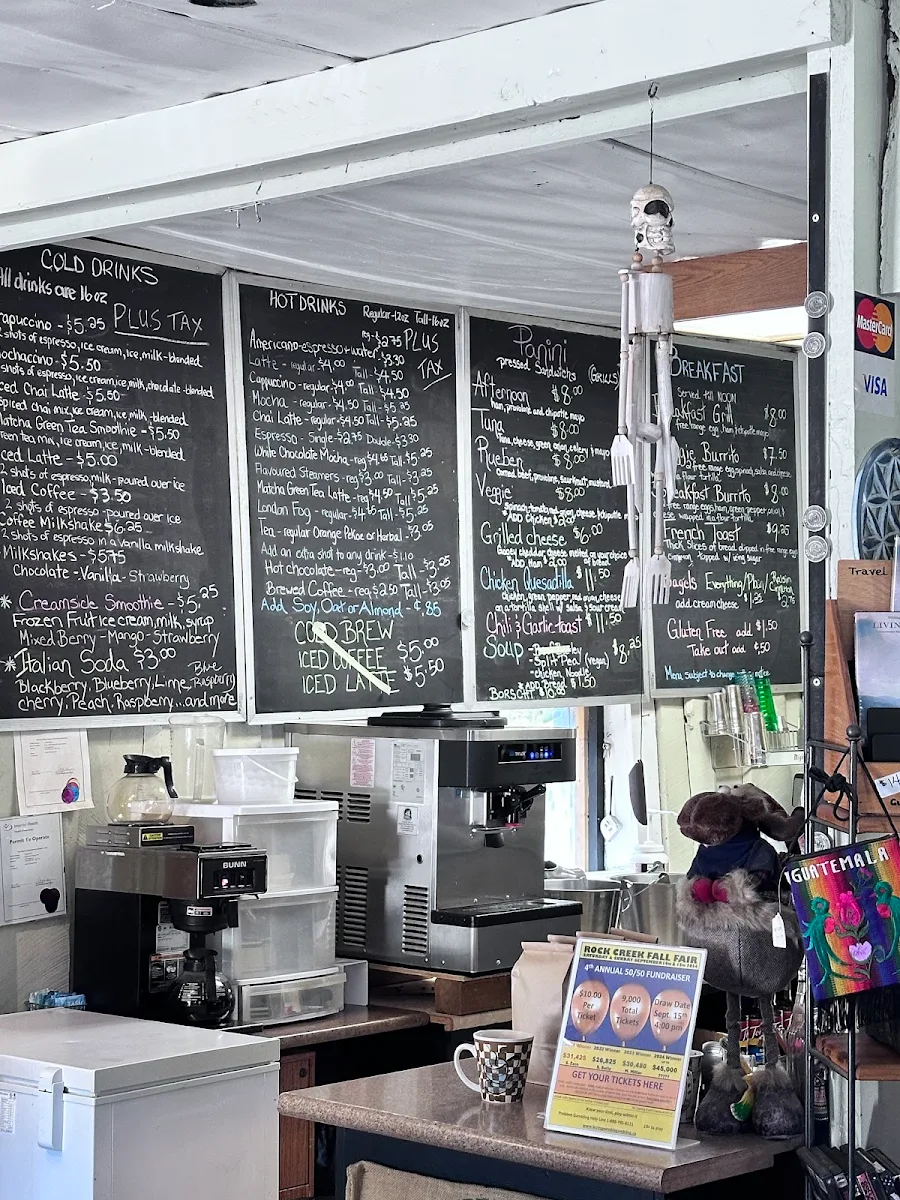 COLD DRINKS
All drinks are 16oz
PLUS TAX
- $5.25
shots of espresso, ice cream, ice, milk-blended
- $5.50
shots of espresso, ice cream, ice, milk, chocolate-blended
ced Chai Latte - $5.50
Spiced chai mix, ice cream, ice, milk, -blended
Matcha Green Tea Smoothie - $5.50
een tea mix, ice cream, ice, milk, -blended
ced Latte - $5.00
2 shots of espresso-milk-poured over ice
Iced Coffee - $3.50
2 shots of espresso -poured over ice
Coffee Milkshake $6.25
2 shots of espresso in a vanilla milkshake
Milkshakes - $5.75
Chocolate - Vanilla - Strawberry
* Creamside Smoothie - $5.25
Frozen Fruit, ice cream, milk, syrup
Mixed Berry - Mango - Strawberry
* Italian Soda $3.00
Blackberry, Blueberry, Lime, Blue Raspberry
cherry, Peach, Raspberry...and more
HOT DRINKS Regular-12oz Tall-16oz
PLUS TAX
Americano-espresso + water reg-$2.75 $3.30
Latte - regular $4.00 Tall - $4.50
Cappuccino - regular $4.00 Tall - $4.50
Mocha - regular - $4.50 Tall - $5.25
Chai Latte - regular - $4.50 Tall - $5.25
Espresso - Single - $2.75 Double - $3.30
White Chocolate Mocha - reg $4.65 Tall - $5.25
Flavoured Steamers - reg $3.00 Tall - $3.25
Matcha Green Tea Latte - reg $4.50 Tall - $5.25
London Fog - regular - $4.50 Tall - $5.25
Tea - regular Orange Pekoe or Herbal - $3.05
Add an extra shot to any drink - $1.10
Hot chocolate - reg - $3.00 Tall - $3.25
Brewed Coffee - reg $2.50 Tall - $3.05
Add, Soy, Oat or Almond - ¢.85
COLD BREW
ICED COFFEE $5.00
ICED LATTE $5.50
Panini
pressed Sandwiches (GRILLED
Afternoon $8.00
ham, provolone, and chipotle mayo
Tuna $8.00
Tuna, cheese, green onion, celery & mayo
Rueben $8.00
Corned beef, provolone, sourkraut, mustard
Veggie $8.00
ADD Chicken
Grilled cheese $6.00
Gooey cheddar cheese melted on your choice
Add Ham $2.00
Chicken Quesadilla $11.50
chicken, green pepper and mozza cheese
on a tortilla shell w/ salsa & sour cream
Chili & Garlic-toast $11.50
Soup $8.25
- Split Pea (vegan)
- Chicken Noodle
ADD Bread $1.50
BORSCHT $10.00
BREAKFAST
Served till NOON
akfast Grill $8.00
free range egg, ham, chipotle mayo
Burrito $7.50
free range egg, spinach, salsa and cheese
a flour tortilla
eakfast Burrito $8.00
free range eggs, ham, green pepper, onion
wrapped in a flour tortilla
French Toast $9.25
Thick slices of bread dipped in free range egg
topped w/ icing sugar
Bagels Everything/Plain/Raisin Cinnamon
add cream cheese $1.25 $2.75
Gluten Free add $1.50
Take out add ¢.50
Menu subject to change
MasterCard
VISA
Travel
LIVIN
$14
Permit To Operate
BUNN
GUATEMALA
ROCK CREEK FALL FAIR
SATURDAY & SUNDAY SEPTEMBER
4th ANNUAL 50/50 FUNDRAISER
$10.00 Per Ticket
9,000 Total Tickets
Draw Date Sept. 15th 4:00 pm
2022 Winner
2023 Winner
$31,425
$26,825
$30,480
$45,000
GET YOUR TICKETS HERE
Know your limit, play within it